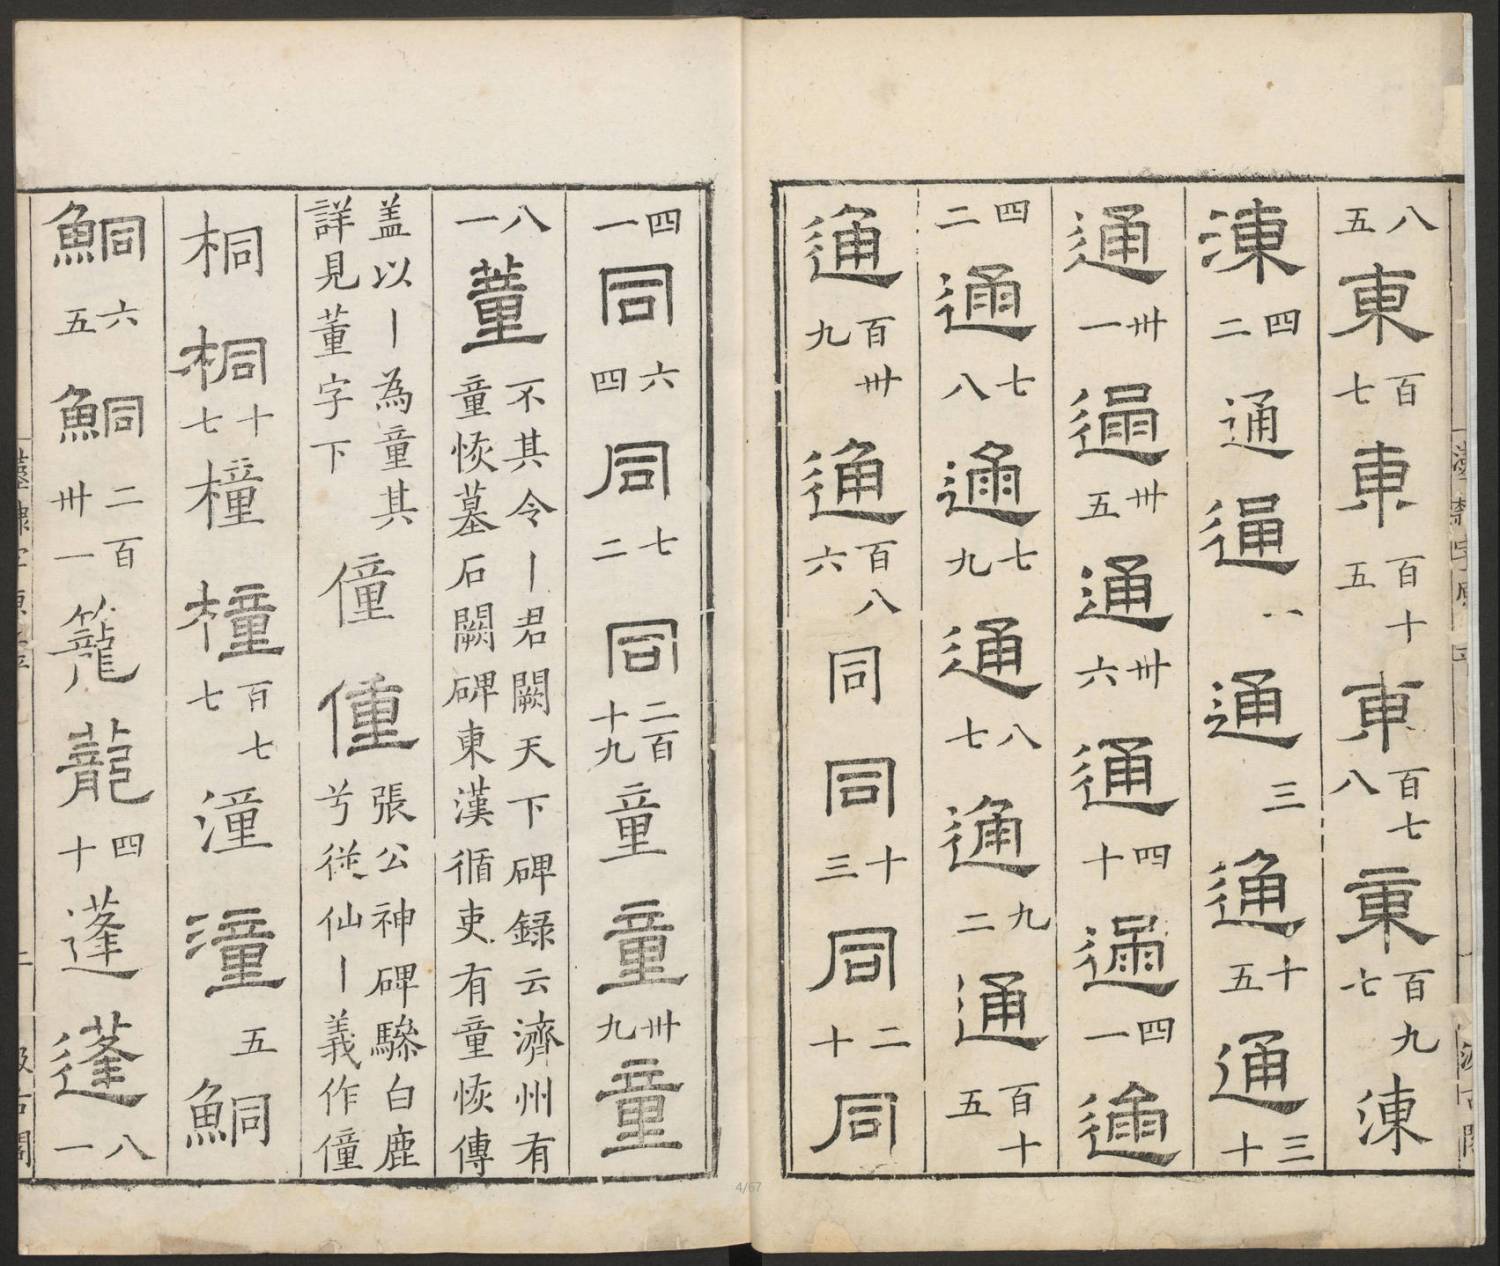 八五東百七東百十五東百七八東百九七涷
涷四二通通八通三通十五通三十
通卅一通卅五通卅六通四十通四一通
四二通七八通七九通八七通九二通百十五
通百卅九通百八六同同十三同二十同
四一同六四同七二同二百十九童童卅九童
八一董不其令丨君闕天下碑録云濟州有
童恢墓石闕碑東漢循吏有童恢傳
盖以丨為童其
詳見董字下
僮僮張公神碑驂白鹿
兮従仙丨義作僮
桐桐十七橦橦百七七潼潼五鮦
鮦六五鮦二百卅一籠蘢四十蓬蓬八一
漢隸字原
汲古閣
4/67